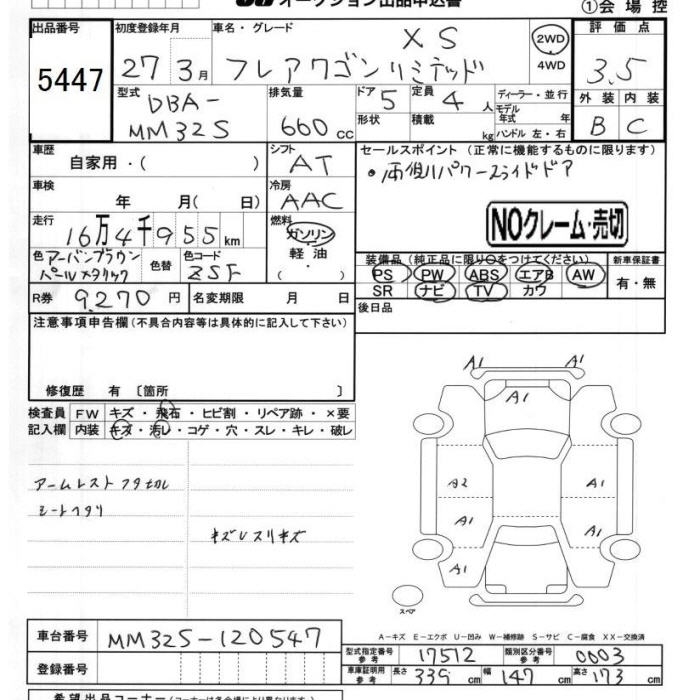 オークション出品申込書
①会場控
出品番号
5447
初度登録年月
27 3月
車名・グレード
XS
フレアワゴンリミテッド
2WD
4WD
評価点
3.5
外装 内装
B C
型式
DBA-
MM32S
排気量
660 cc
ドア 5
形状
定員 4 人
積載 kg
ディーラー・並行
モデル年式 年
ハンドル 左・右
車歴
自家用・( )
シフト
AT
セールスポイント (正常に機能するものに限ります)
・両側パワースライドドア
車検
年 月( 日)
冷房
AAC
走行
16万4千955km
燃料
ガソリン
軽油
・( )
NOクレーム・売切
色 アーバンブラウン
パールメタリック
色替
色コード
ZSF
装備品(純正品に限り○をつけてください)
PS PW ABS エアB AW
SR ナビ TV カワ
新車保証書
有・無
R券 9,270 円
名変期限 月 日
後日品
注意事項申告欄(不具合内容等は具体的に記入して下さい)
修復歴 有 〔箇所 〕
検査員
記入欄
FW キズ・飛石・ヒビ割・リペア跡・×要
内装 キズ・汚レ・コゲ・穴・スレ・キレ・破レ
アームレストフタ
シートヘタリ
キズUスリキズ
A1 A1
A1
A2 A1
A1 A1
A1
スペア
A-キズ E-エクボ U-凹み W-補修跡 S-サビ C-腐食 XX-交換済
車台番号 MM32S-120547
登録番号
型式指定番号
参考
17512
類別区分番号
参考
0003
車庫証明用
参考
長さ 339 cm 幅 147 cm 高さ 173 cm
希望出品コーナー(コーナーは各会場により異なります)